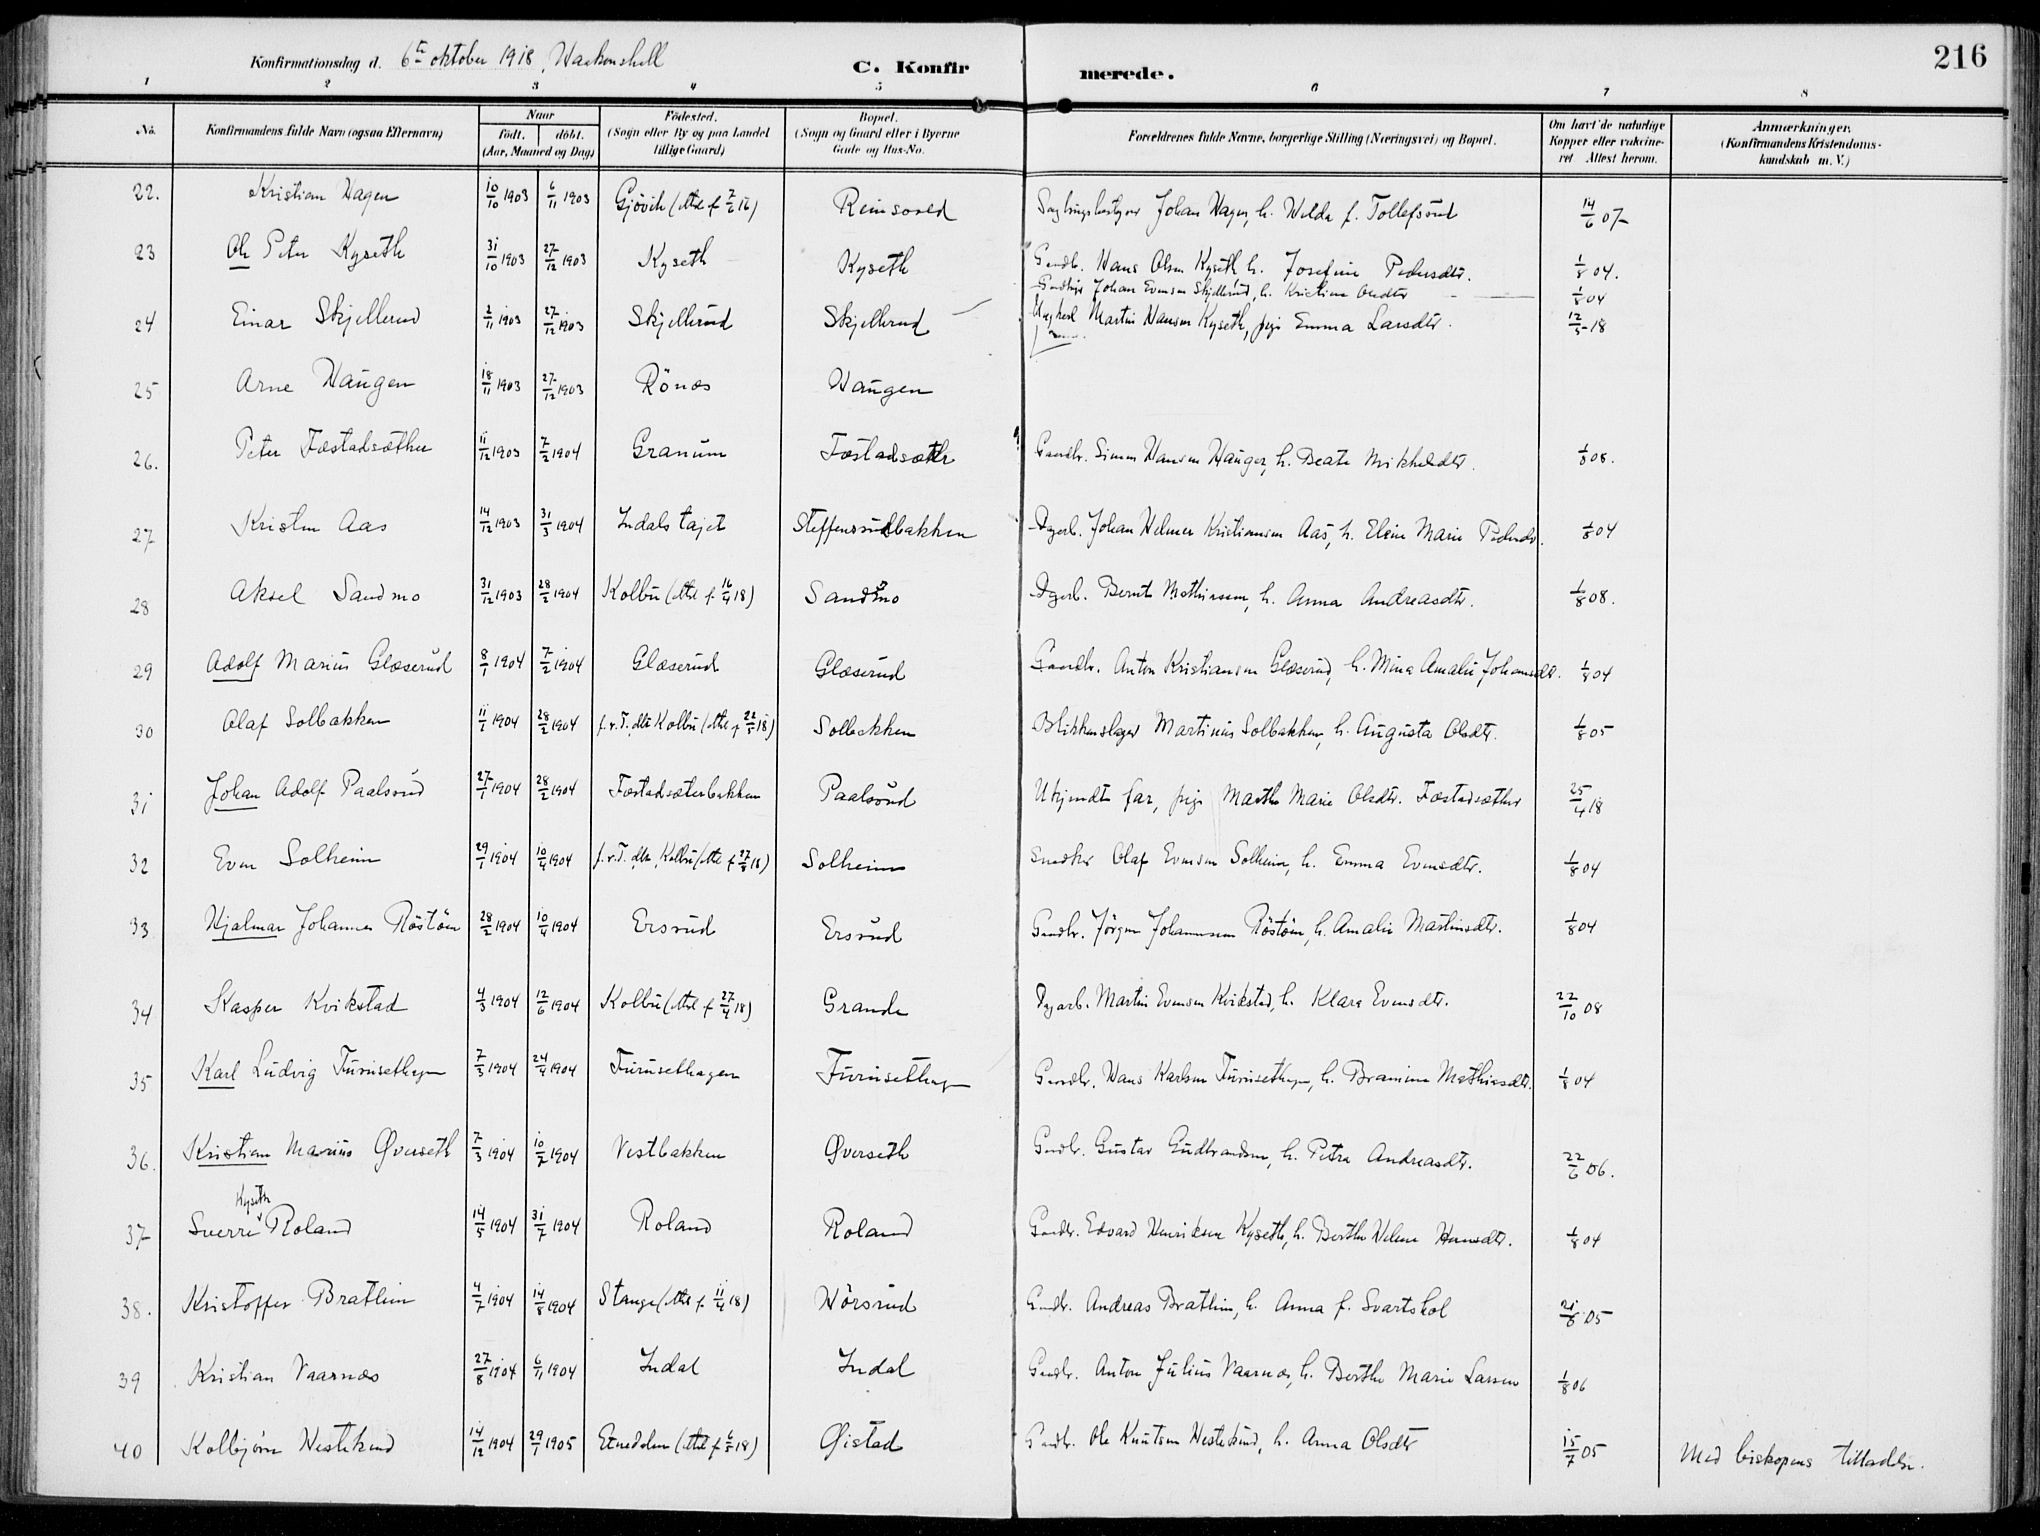 Konfirmationsdag d. 6te oktober 1918, Haakonshall
C. Konfirmerede.
216
1 2 3 4 5 6 7 8
No. Konfirmandens fulde Navn (ogsaa Efternavn) Naar født. døbt. (Aar, Maaned og Dag) Fødested. (Sogn eller By og paa Landet tillige Gaard) Bopæl. (Sogn og Gaard eller i Byerne Gade og Hus-No. Forældrenes fulde Navne, borgerlige Stilling (Næringsvei) og Bopæl. Om havt de naturlige Kopper eller vakcineret Attest herom. Anmærkninger. (Konfirmandens Kristendomskundskab m. V.)
22. Kristian Hagen 10/10 1903 6/11 1903 Gjøvik (attest f 7/2 16) Reinsvold Johan Hagen, h. Hilda f. Tollefsrud 14/6 07
23 Ole Peter Kyseth 31/10 1903 27/12 1903 Kyseth Kyseth Gaardbr. Hans Olsen Kyseth h. Josefine Pedersdtr. 1/8 04.
Johan Evensen Skjellerud, h. Kristine Olsdtr 1/8 04
24 Einar Skjellerud 2/11 1903 27/12 1903 Skjellerud Skjellerud Ungkarl Martin Hansen Kyseth, pige Emma Larsdtr. 12/5 18
25 Arne Haugen 18/11 1903 27/12 1903 Rönæs Haugen
26. Peter Fæstadsæther 11/12 1903 7/2 1904 Granum Fæstadsæter Gaardbr. Simen Hansen Haugen, h. Beate Mikkelsdtr. 1/8 08.
27 Kristen Aas 14/12 1903 31/3 1904 Indalstajet Steffensrudbakken Dagarb. Johan Helmer Kristiansen Aas, h. Eline Marie Pedersdtr. 1/8 04
28 Aksel Sandmo 31/12 1903 28/2 1904 Kolbu (attest f. 16/4 18) Sandmo Dagarb. Bernt Mathiasen, h. Anna Andreasdtr. 1/8 08.
29 Adolf Marius Glæserud 8/1 1904 7/2 1904 Glæserud Glæserud Gaardbr. Anton Kristiansen Glæserud, h. Mina Amalie Johansdtr. 1/8 04
30 Olaf Solbakken 11/1 1904 28/2 1904 f. v. T. dbt. Kolbu (attest f 22/5 18) Solbakken Blikkenslager Martinius Solbakken, h. Augusta Olsdtr. 1/8 05
31 Johan Adolf Paalsrud 27/1 1904 28/2 1904 Fæstadsæterbakken Paalsrud Ukjendt far, pige Marthe Marie Olsdtr. Fæstadsæther 25/4 18
32 Even Solheim 29/1 1904 10/4 1904 f. v. T. dbt. Kolbu (attest f 27/8 18) Solheim Snedker Olaf Evensen Solheim, h. Emma Evensdtr. 1/8 04
33 Hjalmar Johannes Röstöen 28/2 1904 10/4 1904 Ersrud Ersrud Gaardbr. Jørgen Johannesen Röstöen, h. Amalie Martinsdtr. 1/8 04
34 Kasper Kvikstad 4/3 1904 12/6 1904 Kolbu (attest f 27/4 18) Grande Dagarb. Martin Evensen Kvikstad, h. Klara Evensdtr. 22/10 08
35 Karl Ludvig Furusethagen 7/3 1904 24/4 1904 Furusethagen Furusethagen Gaardbr. Hans Karlsen Furusethagen, h. Bramine Mathiasdtr. 1/8 04
36. Kristian Marius Øverseth 7/3 1904 10/7 1904 Vestbakken Øverseth Gaardbr. Gustav Gudbrandsen, h. Petra Andreasdtr. 22/6 06.
37 Sverre Kyseth Roland 14/5 1904 31/7 1904 Roland Roland Gaardbr. Edvard Henriksen Kyseth, h. Berthe Helene Hansdtr. 1/8 04
38. Kristoffer Bratlien 4/7 1904 14/8 1904 Stange (attest f. 11/4 18) Hörsrud Gaardbr. Andreas Bratlien, h. Anna f. Svartshol 21/8 05
39 Kristian Vaarnæs 27/8 1904 6/11 1904 Indal Indal Gaardbr. Anton Julius Vaarnæs, h. Berthe Marie Larsen 1/8 06
40 Kolbjørn Westerlund 14/12 1904 29/1 1905 Etnedalen (attest f 6/5 18) Øistad Gaardbr. Ole Knutsen Westerlund, h. Anna Olsdtr 15/7 05 Med biskopens tilladelse.